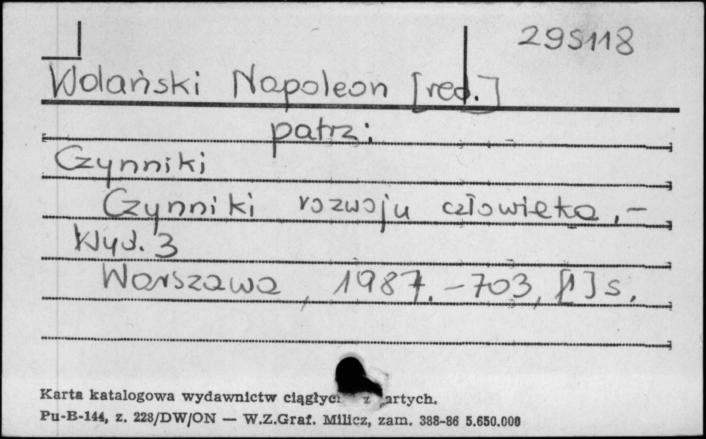 295118
Wolański Napoleon [red.]
patrz:
Czynniki
Czynniki rozwoju człowieka.-
Wyd. 3
Warszawa, 1987. - 703, [1] s.
Karta katalogowa wydawnictw ciągłych z artych.
Pu-B-144, z. 228/DW/ON — W.Z.Graf. Milicz, zam. 388-86 5.650.000